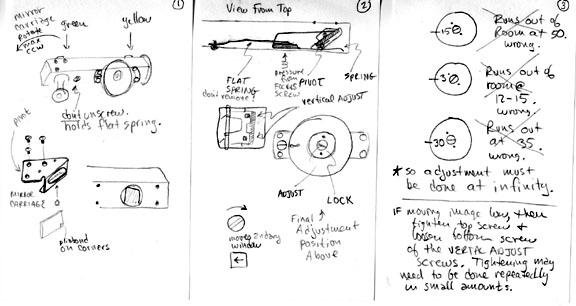 ①
mirror
carriage
rotate
max
CCW
green
yellow
don't unscrew.
holds flat spring.
pivot
MIRROR
CARRIAGE
on corners
②
View From Top
FLAT
SPRING
don't remove!
pressure
from
Focus
SCREW
PIVOT
SPRING
vertical ADJUST
ADJUST
LOCK
moves 2ndary
window
Final
Adjustment
Position
Above
③
-15
Runs out of
Room at 50.
wrong.
-3
Runs out of
room @
12-15.
wrong.
-30
Runs out
at 35.
wrong.
* so adjustment must
be done at infinity.
IF moving image low, then
tighten top screw &
loosen bottom screw
of the VERTICAL ADJUST
screws. Tightening may
need to be done repeatedly
in small amounts.